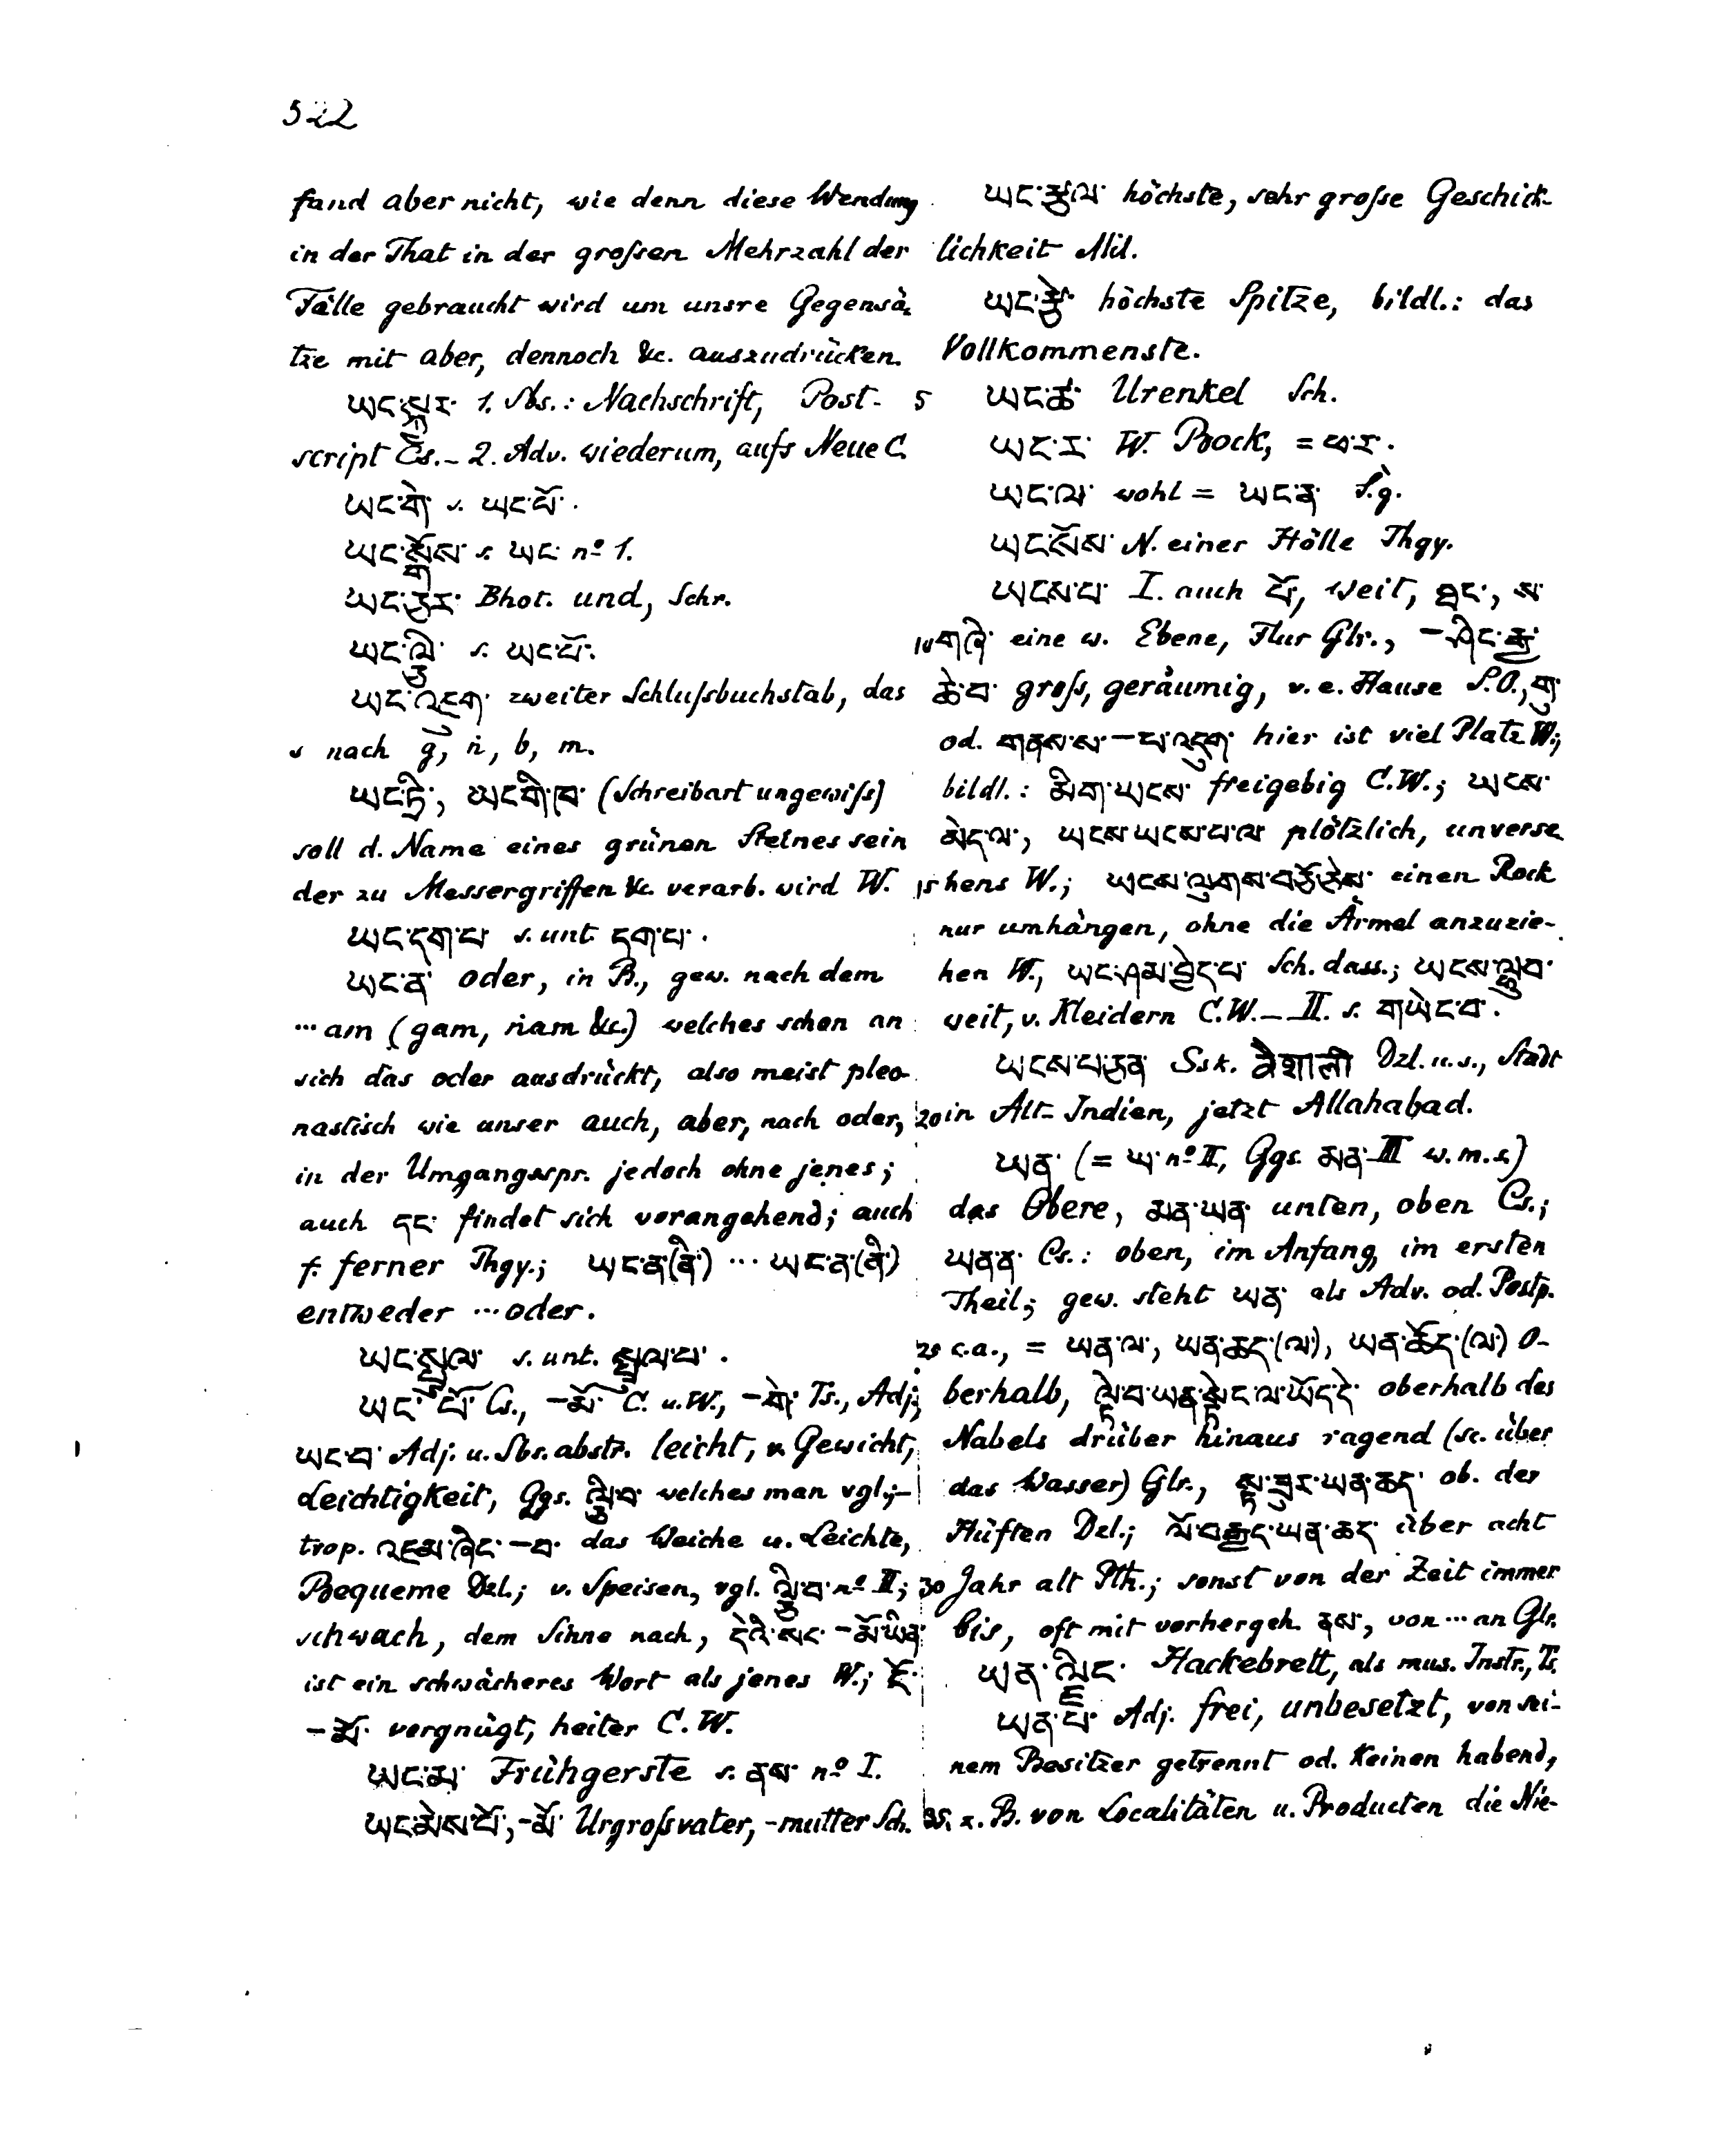 522
fand aber nicht, wie denn diese Wendung
in der That in der großen Mehrzahl der
Fälle gebraucht wird um unsre Gegensä-
tze mit aber, dennoch &c. auszudrücken.
ཡང་སྐྱར་ 1. Sbs.: Nachschrift, Post-
script Cs. – 2. Adv. wiederum, aufs Neue C.
ཡང་གེ་ s. ཡང་པོ་.
ཡང་སྒོས་ s. ཡང་ no 1.
ཡང་ཅར་ Bhot. und, Schr.
ཡང་ s. ཡང་པོ་.
ཡང་འཇུག་ zweiter Schlußbuchstab, das
s nach g, ṅ, b, m.
ཡང་ཏི་, ཡང་གི་ཁ་ (Schreibart ungewiß)
soll d. Name eines grünen Steines sein
der zu Messergriffen &c. verarb. wird W.
ཡང་དག་པ་ s. unt. དག་པ་.
ཡང་ན་ oder, in B., gew. nach dem
... am (gam, ṅam &c.) welches schon an
sich das oder ausdrückt, also meist pleo-
nastisch wie unser auch, aber, nach oder,
in der Umgangsspr. jedoch ohne jenes;
auch དང་ findet sich vorangehend; auch
f. ferner Thgy.; ཡང་ན་(ནི་) ... ཡང་ན་(ནི་)
entweder ... oder.
ཡང་སྤྲུལ་ s. unt. སྤྲུལ་པ་.
ཡང་པོ་ Cs., –མོ་ C. u. W., –གེ་ Ts., Adj.,
ཡང་བ་ Adj. u. Sbs. abstr. leicht, v. Gewicht,
Leichtigkeit, Ggs. ལྕི་བ་ welches man vgl.; –
trop. འཇམ་ཞིང་ –བ་ das Weiche u. Leichte,
Bequeme Dzl.; v. Speisen, vgl. ལྕི་བ་ no II;
schwach, dem Sinne nach, དེའི་སང་ –མོ་ཡིན་
ist ein schwächeres Wort als jenes W.; ངོ་
–མོ་ vergnügt, heiter C. W.
ཡང་མ་ Frühgerste s. ནས་ no I.
ཡང་མེས་པོ་, –མོ་ Urgroßvater, -mutter Sch.
ཡང་རྩལ་ höchste, sehr große Geschick-
lichkeit Mil.
ཡང་རྩེ་ höchste Spitze, bildl.: das
Vollkommenste.
5 ཡང་ཚ་ Urenkel Sch.
ཡང་ར་ W. Bock, = ཕ་ར་.
ཡང་ལ་ wohl = ཡང་ན་ S.g.
ཡང་སོས་ N. einer Hölle Thgy.
ཡངས་པ་ I. auch པོ་, weit, ཐང་, ས་
10 གཞི་ eine w. Ebene, Flur Glr., –ཞིང་རྒྱ་
ཆེ་བ་ groß, geräumig, v. e. Hause S.O., གུ་
od. གནས་ས་ –པ་འདུག་ hier ist viel Platz W.;
bildl.: མིག་ཡངས་ freigebig C. W.; ཡངས་
མེད་ལ་, ཡངས་ཡངས་པ་ལ་ plötzlich, unverse
15 hens W.; ཡངས་ལུགས་བ einen Rock
nur umhängen, ohne die Ärmel anzuzie-
hen W., ཡང་ཤམ་བྱེད་པ་ Sch. dass.; ཡངས་ལྷུབ་
weit, v. Kleidern C. W. – II. s. གཡེང་བ་.
ཡངས་པ་ཅན་ Ssk. वैशाली Dzl. u. s., Stadt
20 in Alt-Indien, jetzt Allahabad.
ཡན་ (= ཡ་ no II, Ggs. མན་ III w. m. s.)
das Obere, མན་ཡན་ unten, oben Cs.;
ཡན་ན་ Cs.: oben, im Anfang, im ersten
Theil; gew. steht ཡན་ als Adv. od. Postp.
25 c.a., = ཡན་ལ་, ཡན་ཆད་(ལ་), ཡན་ཆོད་(ལ་) o-
berhalb, ལྟེ་བ་ཡན་སྟེང་ལ་ཡོད་དེ་ oberhalb des
Nabels drüber hinaus ragend (sc. über
das Wasser) Glr., སྟ་ཟུར་ཡན་ཆད་ ob. der
Hüften Dzl.; ལོ་བརྒྱད་ཡན་ཆད་ über acht
30 Jahr alt Pth.; sonst von der Zeit immer
bis, oft mit vorhergeh. ནས་, von ... an Glr.
ཡན་ Hackebrett, als mus. Instr., Ts.
ཡན་པ་ Adj. frei, unbesetzt, von sei-
nem Besitzer getrennt od. keinen habend,
35 z. B. von Localitäten u. Producten die Nie-